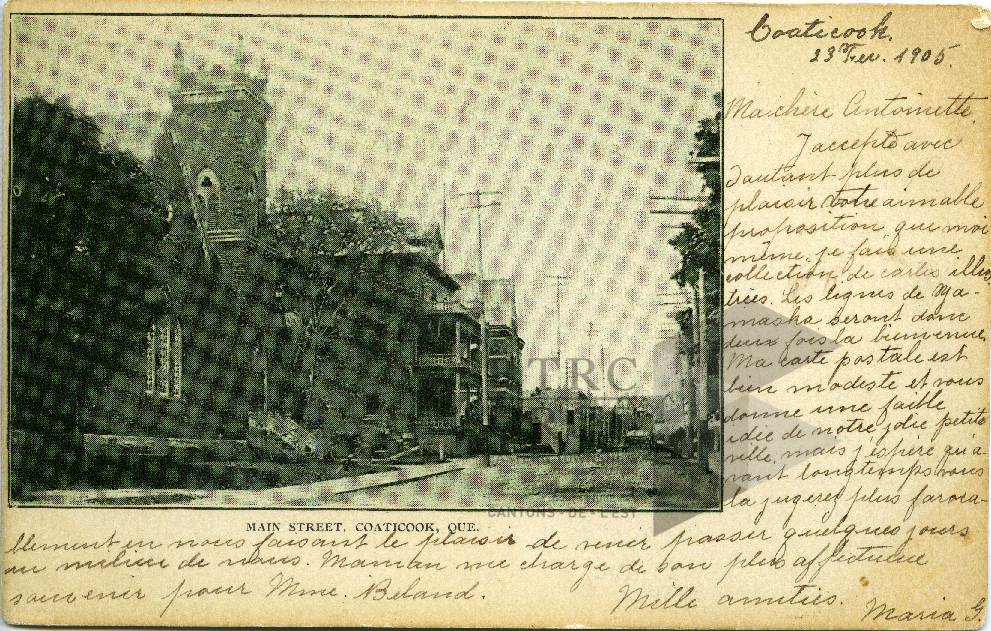 Coaticook.
23 Fev. 1905.
Ma chère Antoinette,
J'accepte avec
d'autant plus de
plaisir votre aimable
proposition, que moi
même, je fais une
collection de cartes illus
trées. Les lignes de Ya-
maska seront donc
deux fois la bienvenue.
Ma carte postale est
bien modeste et vous
donne une faible
idée de notre jolie petite
ville, mais j'espère qu'a-
vant longtemps vous
la jugerez plus favora-
blement en nous faisant le plaisir de venir passer quelques jours
au milieu de nous. Maman me charge de son plus affectueux
souvenir pour Mme. Beland.
Mille amitiés.
Maria G.
MAIN STREET, COATICOOK, QUE.
ETRC
CANTONS-DE-L'EST